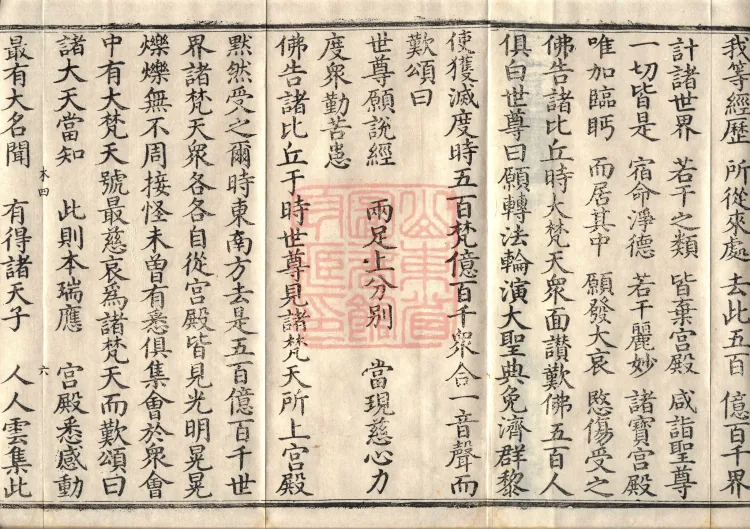 我等經歷 所從來處 去此五百 億百千界
計諸世界 若干之類 皆棄宮殿 咸詣聖尊
一切皆是 宿命淨德 若干麗妙 諸寶宮殿
唯加臨眄 而居其中 願發大哀 愍傷受之
佛告諸比丘時大梵天衆面讃歎佛五百人
俱白世尊曰願轉法輪演大聖典免濟群黎
使獲滅度時五百梵億百千衆合一音聲而
歎頌曰
世尊願說經 兩足上分別 當現慈心力
度衆勤苦患
佛告諸比丘于時世尊見諸梵天所上宮殿
默然受之爾時東南方去是五百億百千世
界諸梵天衆各各自從宮殿皆見光明晃晃
爍爍無不周接怪未曾有悉俱集會於衆會
中有大梵天號最慈哀爲諸梵天而歎頌曰
諸大天當知 此則本瑞應 宮殿悉感動
最有大名聞 有得諸天子 人人雲集此